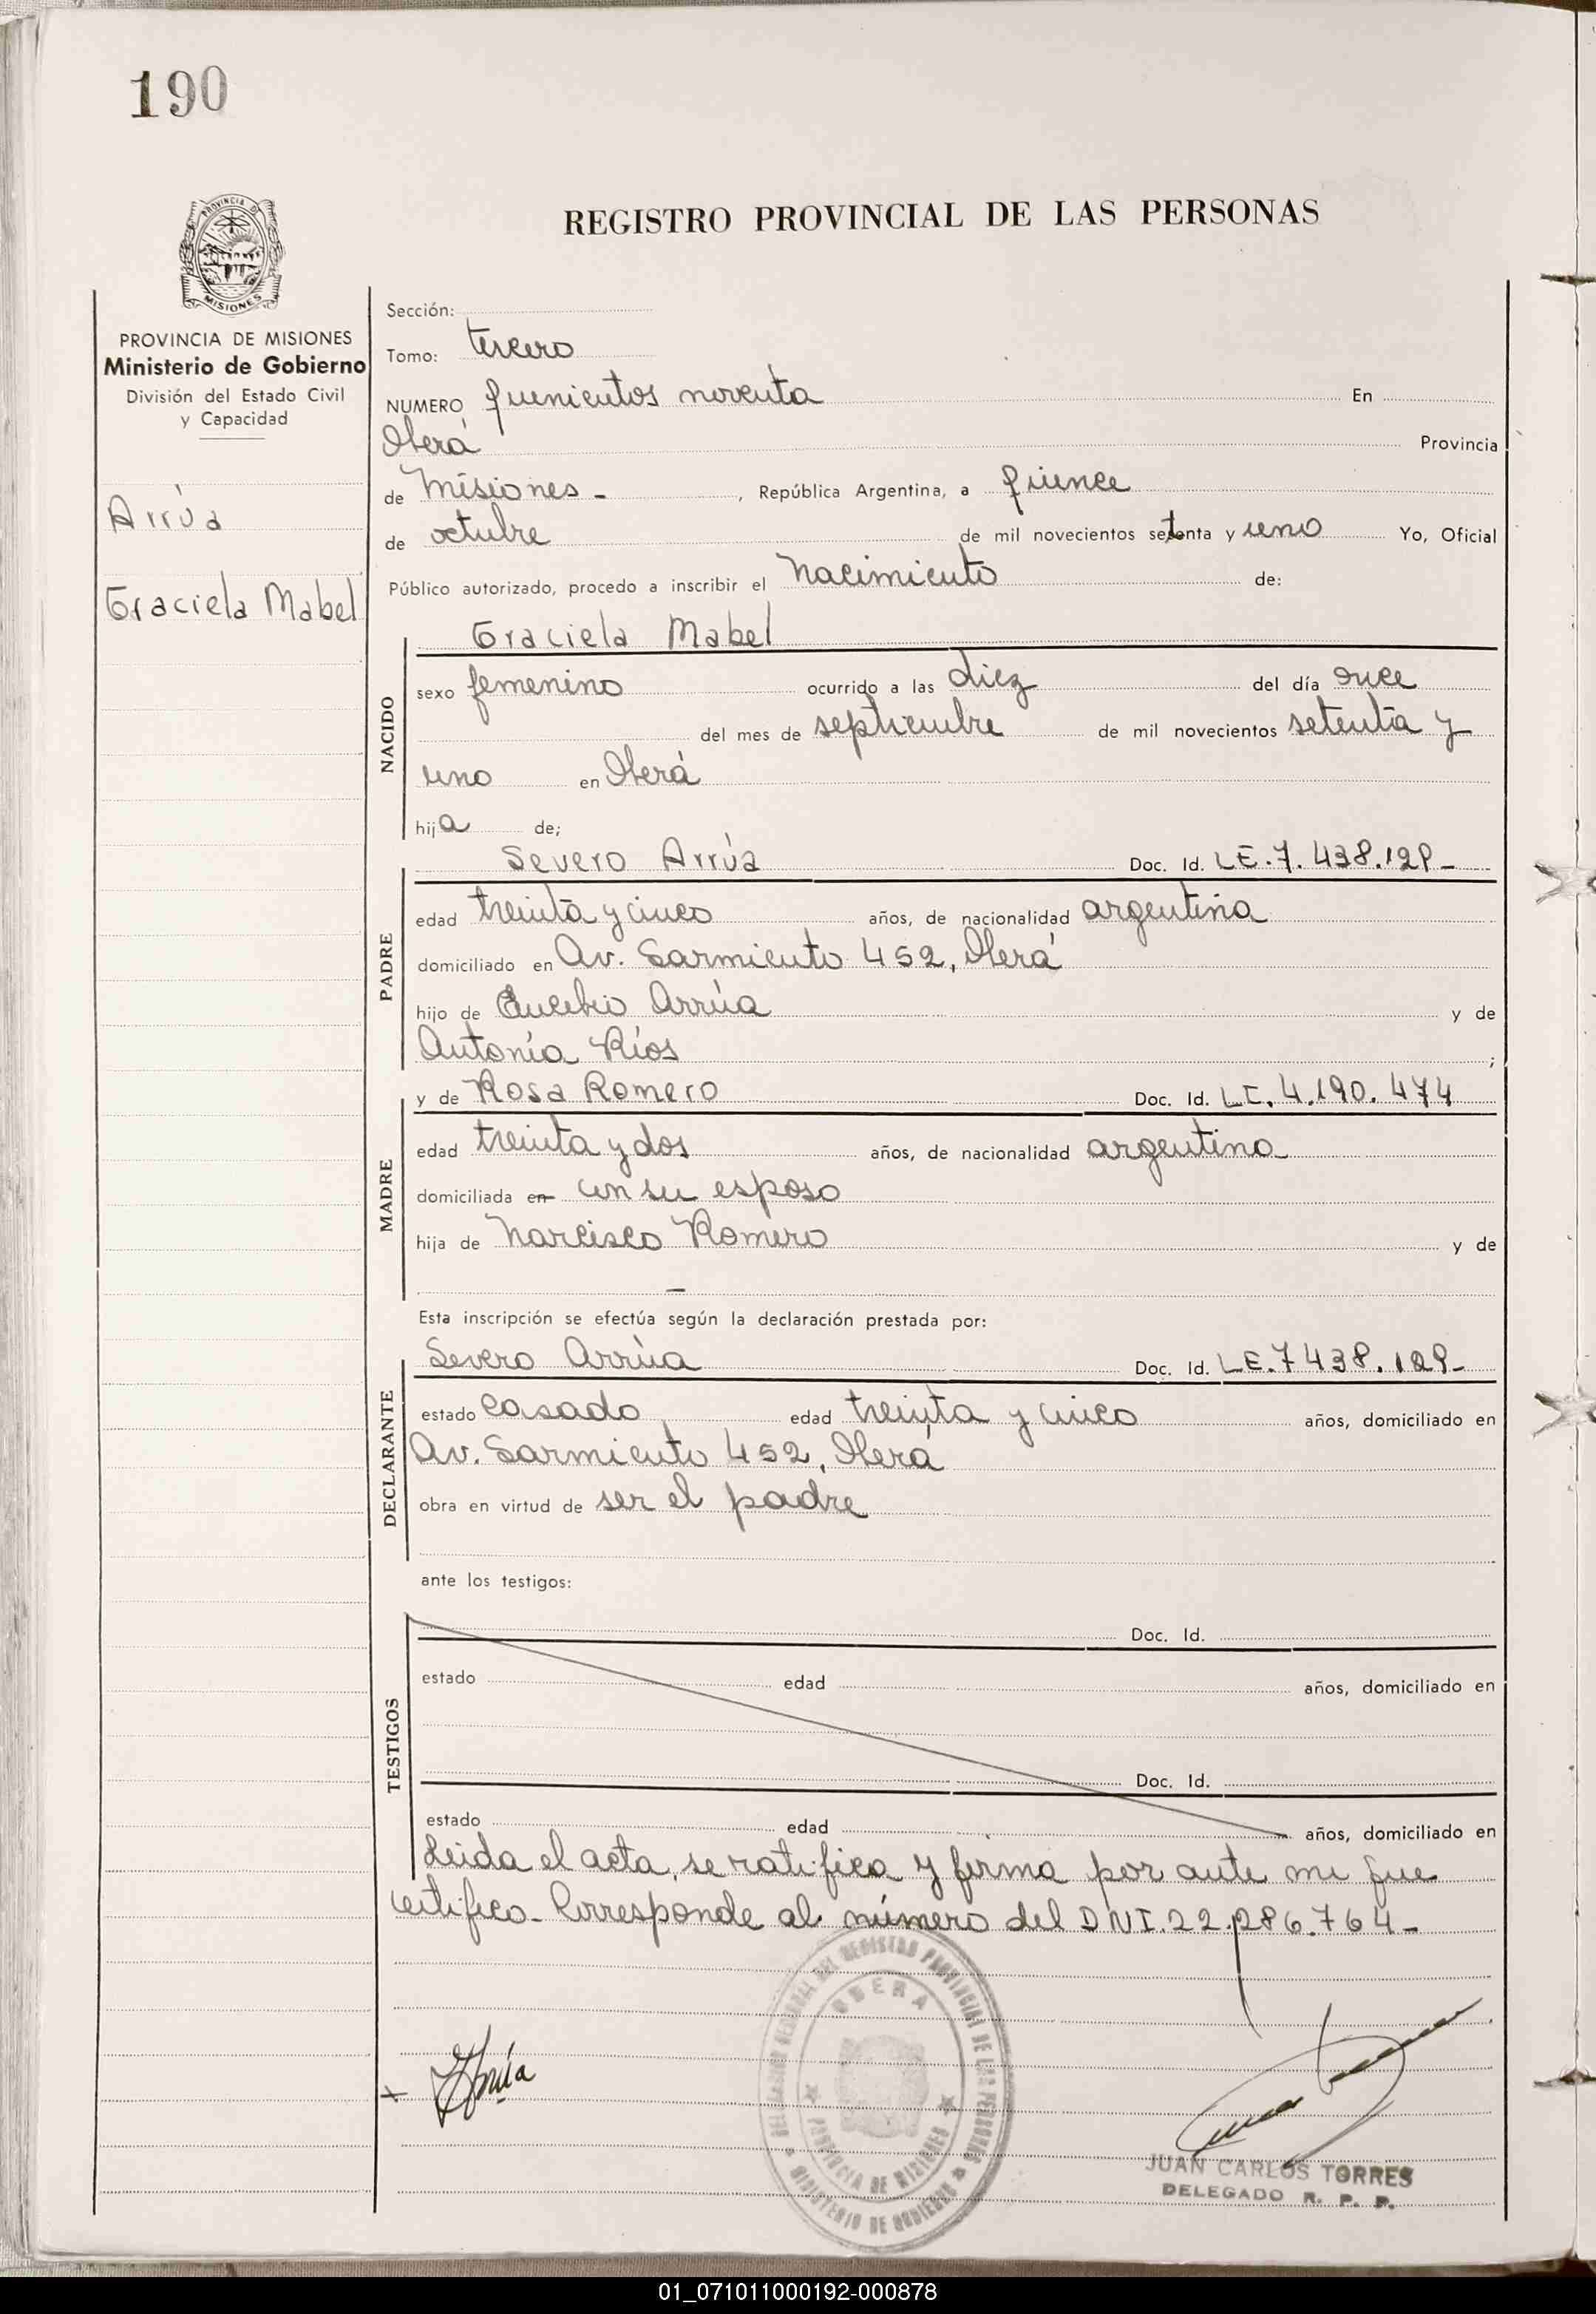 190
PROVINCIA DE
MISIONES
REGISTRO PROVINCIAL DE LAS PERSONAS
PROVINCIA DE MISIONES
Ministerio de Gobierno
División del Estado Civil
y Capacidad
Arrúa
Graciela Mabel
Sección:
Tomo: tercero
NUMERO quinientos noventa En
Oberá Provincia
de Misiones - , República Argentina, a quince
de octubre de mil novecientos setenta y uno Yo, Oficial
Público autorizado, procedo a inscribir el nacimiento de:
NACIDO
Graciela Mabel
sexo femenino ocurrido a las diez del día once
del mes de septiembre de mil novecientos setenta y
uno en Oberá
hija de;
PADRE
Severo Arrúa Doc. Id. L.E. 7.438.129-
edad treinta y cinco años, de nacionalidad argentina
domiciliado en Av. Sarmiento 452, Oberá
hijo de Eucebio Arrúa y de
Antonia Ríos ;
MADRE
y de Rosa Romero Doc. Id. L.C. 4.190.474
edad treinta y dos años, de nacionalidad argentina
domiciliada en con su esposo
hija de Narcisco Romero y de
-
Esta inscripción se efectúa según la declaración prestada por:
DECLARANTE
Severo Arrúa Doc. Id. L.E. 7438.129-
estado casado edad treinta y cinco años, domiciliado en
Av. Sarmiento 452, Oberá
obra en virtud de ser el padre
ante los testigos:
TESTIGOS
Doc. Id.
estado edad años, domiciliado en
Doc. Id.
estado edad años, domiciliado en
Leida el acta, se ratifica y firma por ante mi que
certifico. Corresponde al número del DNI. 22.286.764-
DELEGACION REGIONAL DEL REGISTRO PROVINCIAL DE LAS PERSONAS
OBERA
PROVINCIA DE MISIONES
MINISTERIO DE GOBIERNO
x Arrúa
JUAN CARLOS TORRES
DELEGADO R. P. P.
01_071011000192-000878